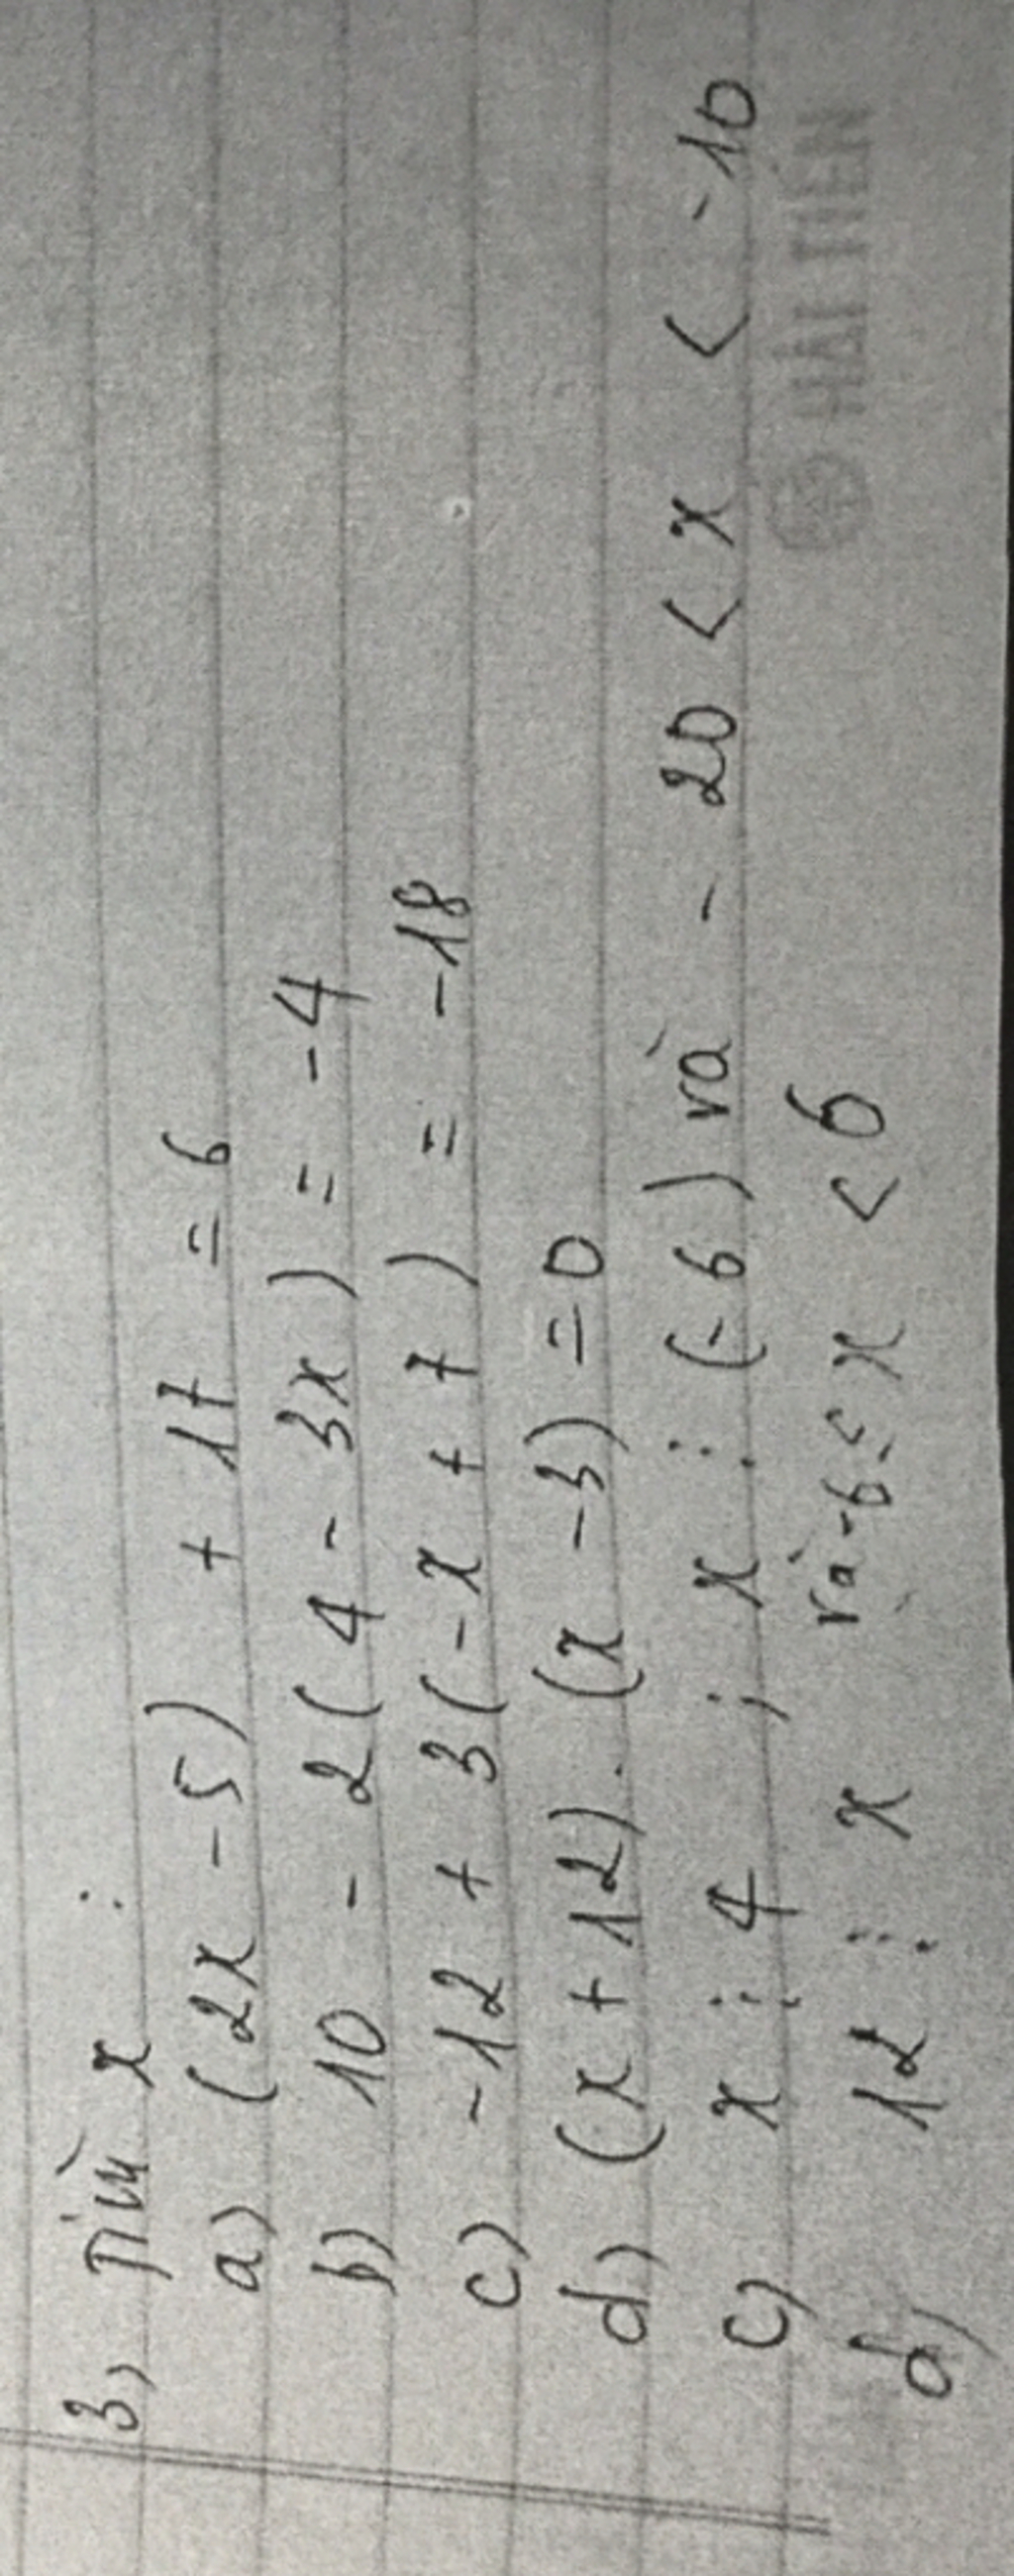 3, Tìm x :
a) (2x - 5) + 17 = 6
b) 10 - 2(4 - 3x) = -4
c) -12 + 3(-x + 7) = -18
d) (x + 12). (x - 3) = 0
c) x ⋮ 4 ; x ⋮ (-6) và - 20 < x < -10
d) 12 ⋮ x và -6 ≤ x < 6
HẢI TIẾN